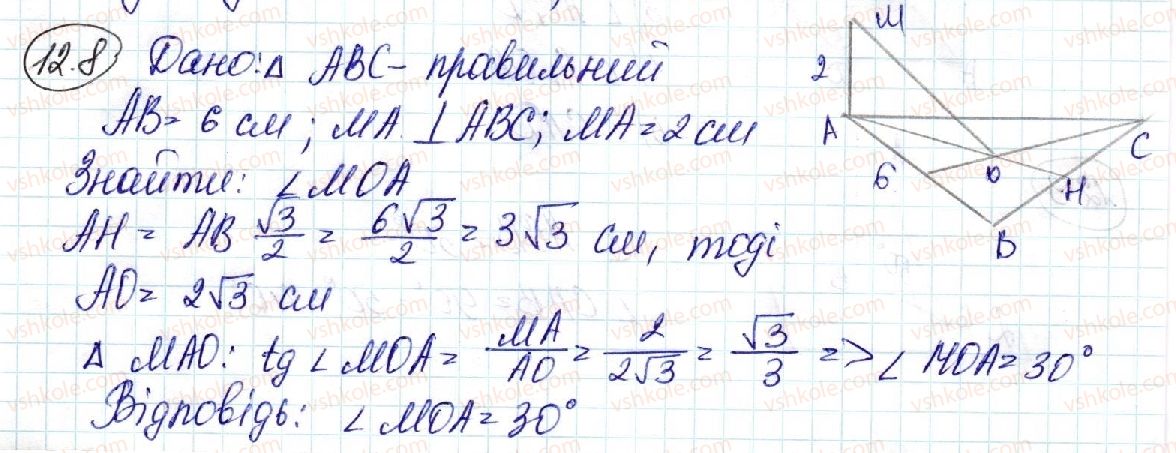 12.8 Дано: Δ ABC - правильний
AB = 6 см; MA ⊥ ABC; MA = 2 см
Знайти: ∠MOA
AH = AB √3/2 = 6√3/2 = 3√3 см, тоді
AO = 2√3 см
Δ MAO: tg ∠MOA = MA/AO = 2/2√3 = √3/3 => ∠MOA = 30°
Відповідь: ∠MOA = 30°
M
2
A
C
6
O
H
B